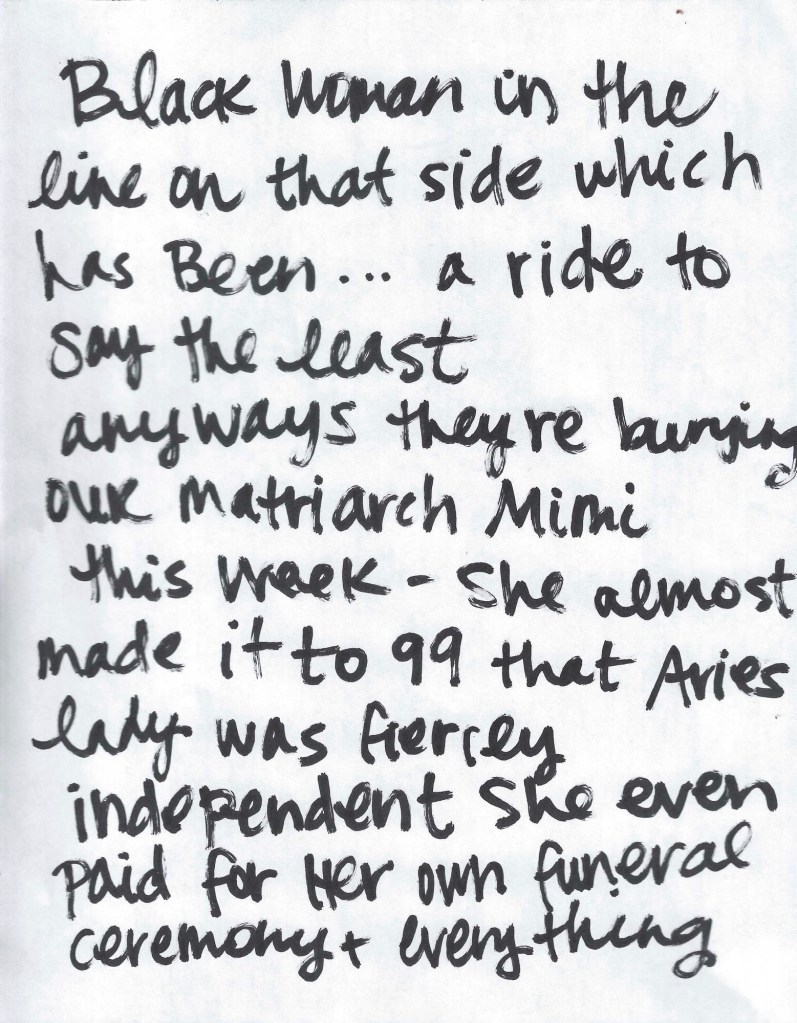 Black Woman in the
line on that side which
has Been... a ride to
say the least
anyways they're burying
our matriarch Mimi
this week - She almost
made it to 99 that Aries
lady was fiercey
independent She even
paid for Her own funeral
ceremony + everything